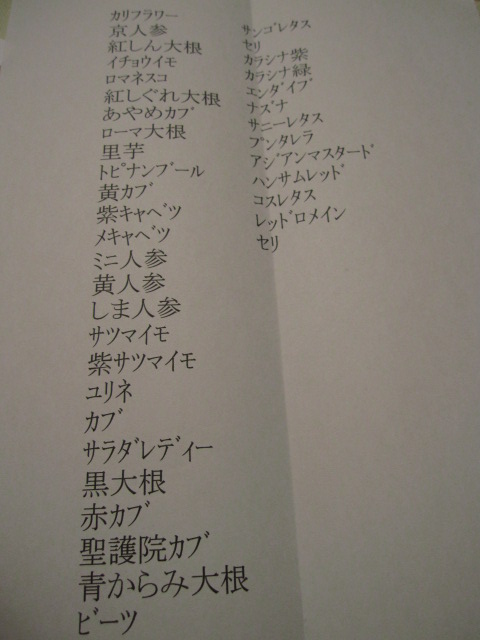 カリフラワー
京人参
紅しん大根
イチョウイモ
ロマネスコ
紅しぐれ大根
あやめカブ
ローマ大根
里芋
トピナンブール
黄カブ
紫キャベツ
メキャベツ
ミニ人参
黄人参
しま人参
サツマイモ
紫サツマイモ
ユリネ
カブ
サラダレディー
黒大根
赤カブ
聖護院カブ
青からみ大根
ビーツ
サンゴレタス
セリ
カラシナ紫
カラシナ緑
エンダイブ
ナズナ
サニーレタス
プンタレラ
アジアンマスタード
ハンサムレッド
コスレタス
レッドロメイン
セリ